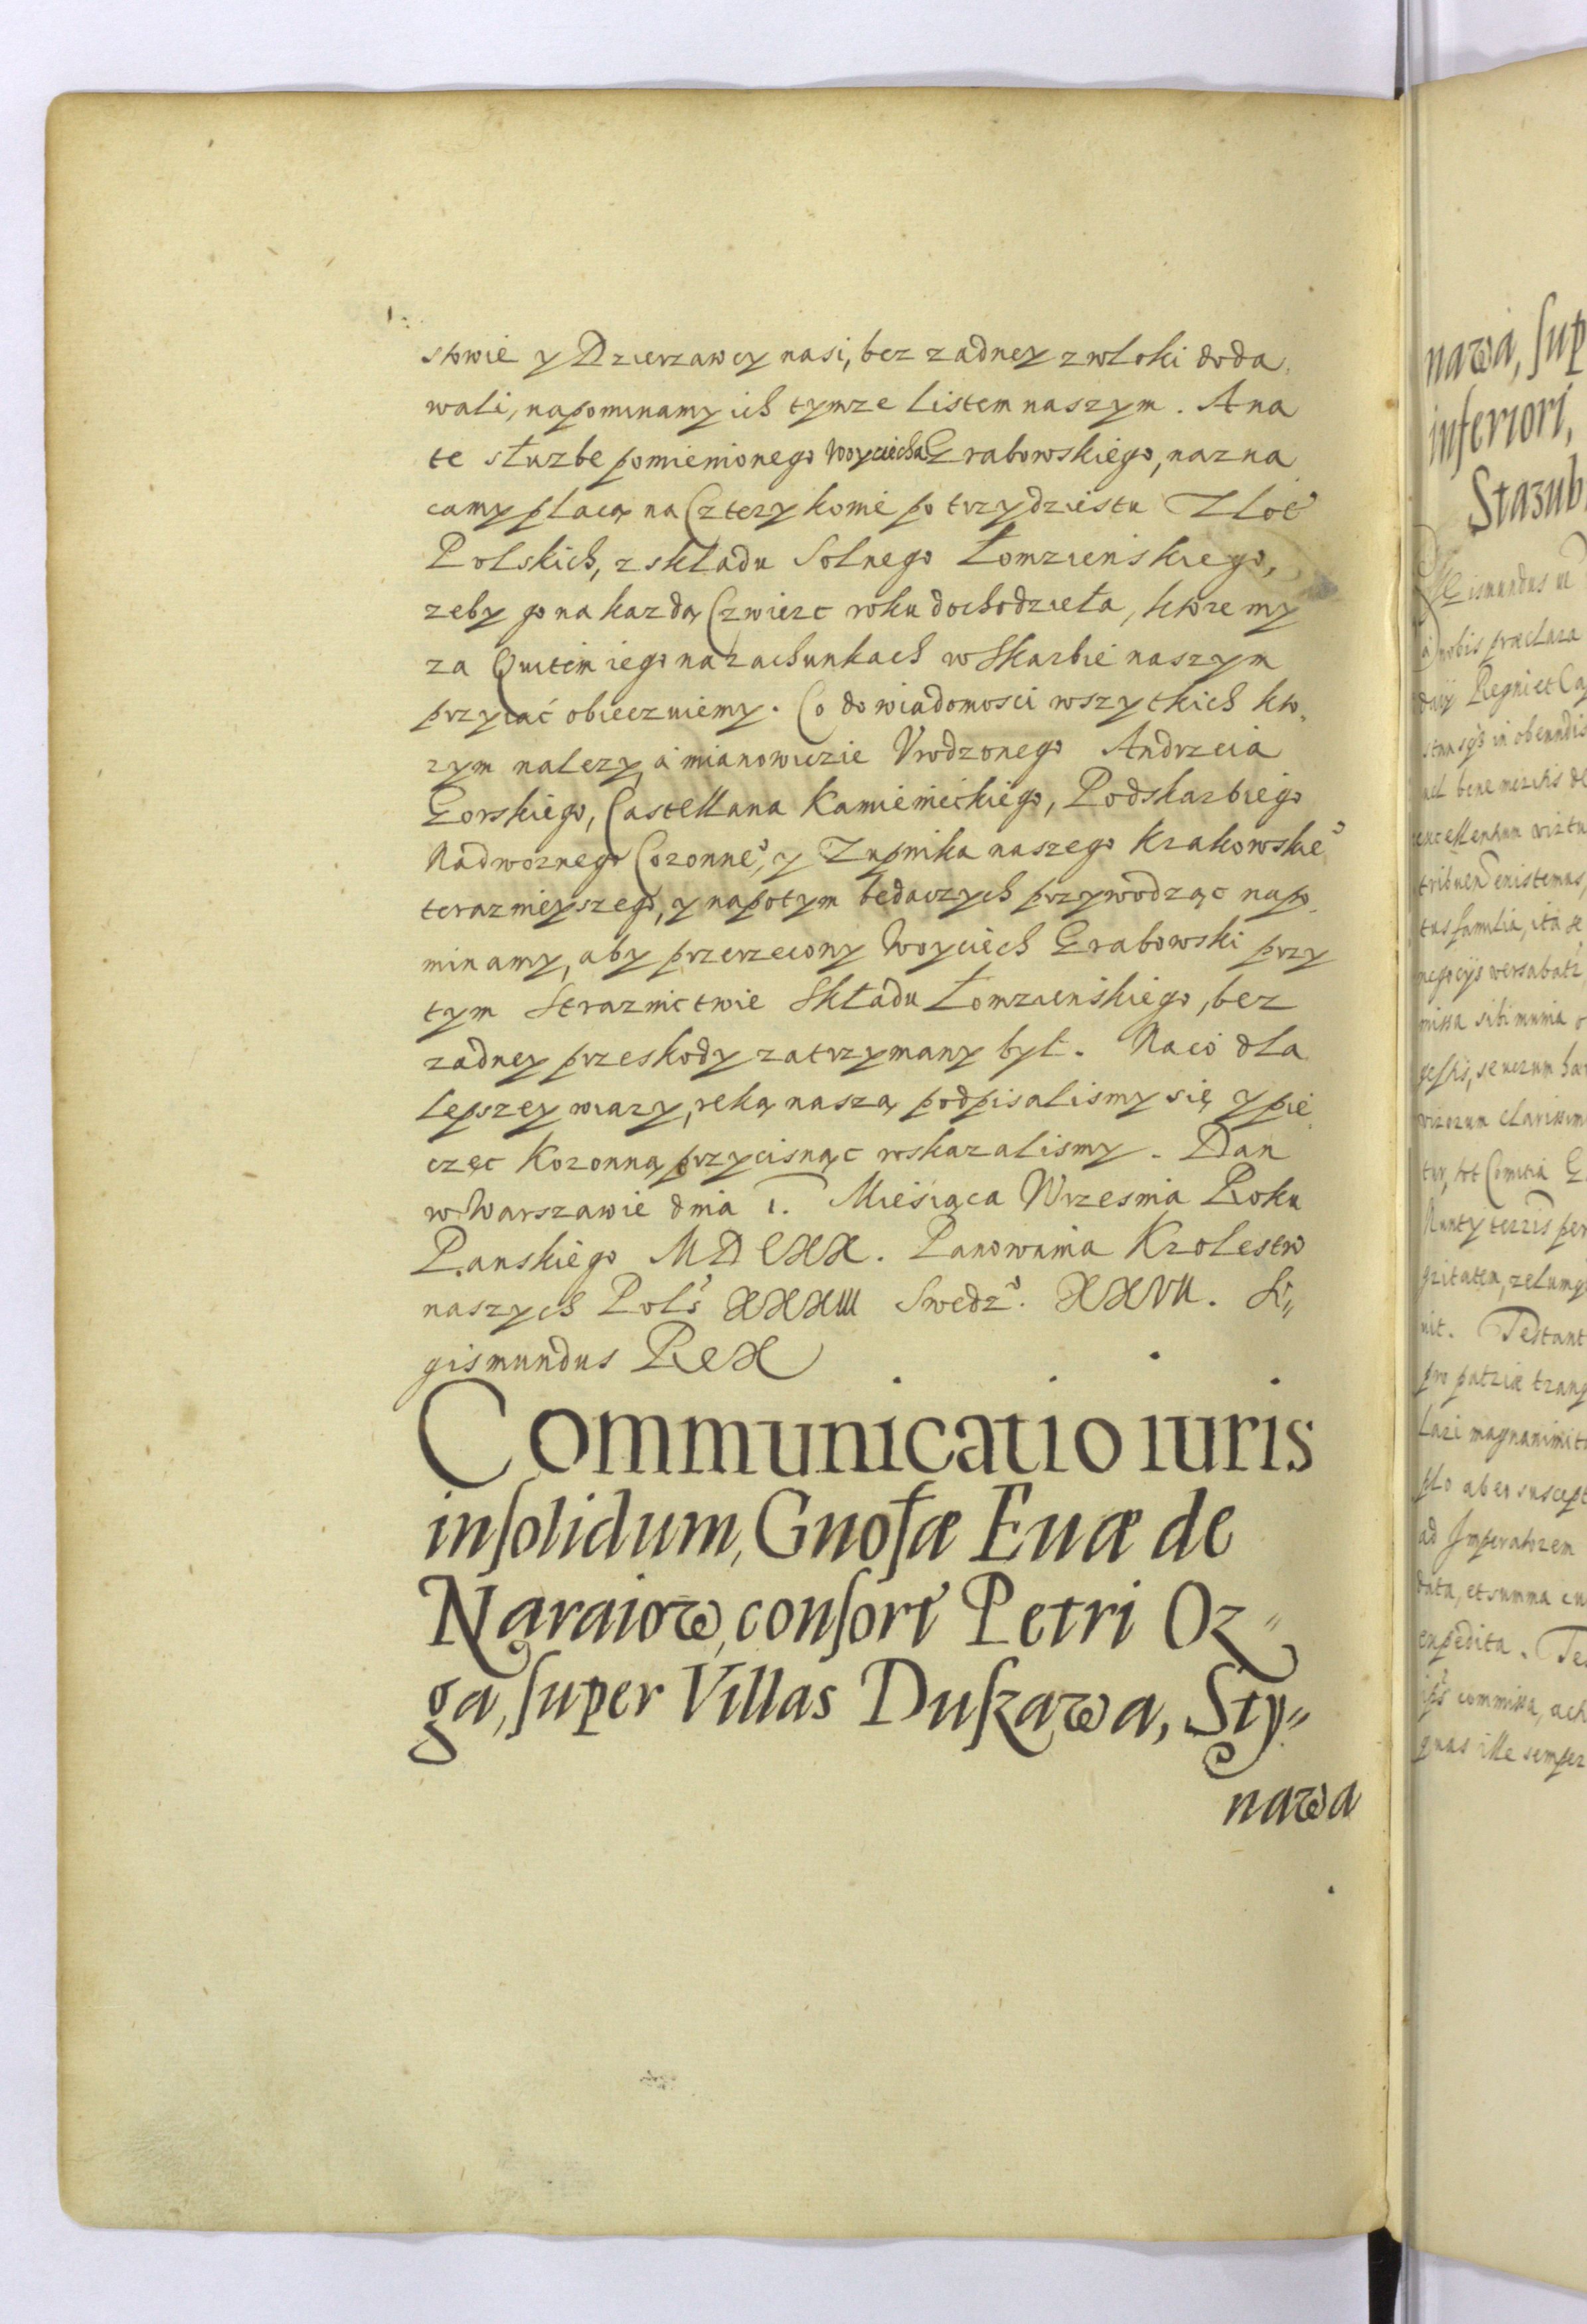 stowie y Dzierzawcy nasi, bez zadney zwloki doda
wali, napominamy ich tymze listem naszym. A na
te służbe pomienionego Woyciecha Grabowskiego, nazna
camy płacą na Cztery konie po trzydziestu Złot
Polskich, z składu Solnego Łomzienskiego,
zeby go na kazdą Czwierc roku dochodzieła, ktore my
za Quitem iego na rachunkach w Skarbie naszym
przyiać obiecuiemy. Co do wiadomosci wszytkich kto,
rym nalezy, a mianowicie Vrodzonego Andrzeia
Gorskiego, Castellana Kamienieckiego, Podskarbiego
Nadwornego Coronne, y Zupnika naszego Krakowskie
terazmieyszego, y napotym będaczych przywodząc napo
minamy, aby przerzeczony Woyciech Grabowski przy
tym Straznictwie Składu Łomzienskiego, bez
zadney przeskody zatrzymany był. Na co dla
lepszey wiary, ręką naszą podpisalismy się y pie
częc Koronną przycisnąc wskazalismy. Dan
w Warszawie dnia 1. Miesiąca Wrzesnia Roku
Panskiego MDCXX. Panowania Krolestw
naszych Pols XXXIII Swedz. XXVII. Si„
gismundus Rex
Communicatio iuris
insolidum, Gnosæ Euæ de
Naraiow, consort Petri Oz„
ga, super Villas Dukawa, Sty„
nawa
nawa, sup
inferiori,
Stazub
nobis præclara
Regni et Ca
in obeundis
bene meritis de
tus familia, ita se
negocijs versabatr
missa sibi munia o
Comitia
pro patriæ tranq
magnanimit
ab eo suscept
ad Imperatorem
data, et summa cu
expedita. Te
commissa, ach
quas ille semper